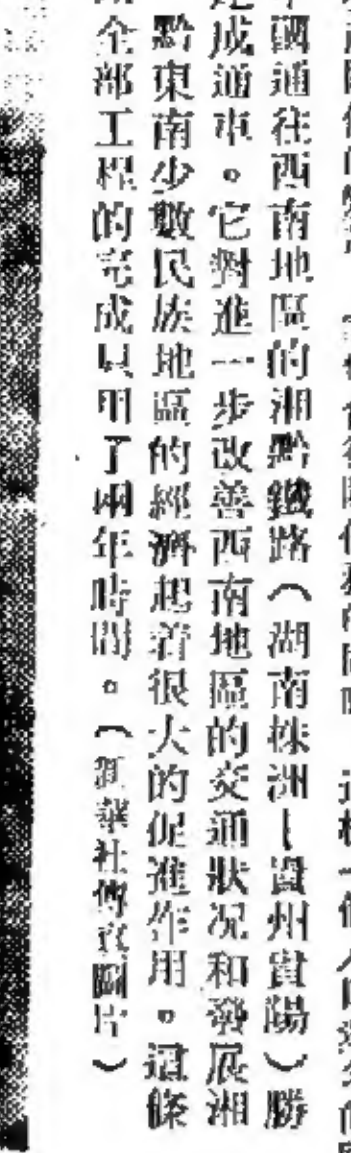 國通往西南地區的湘黔鐵路（湖南株洲—貴州貴陽）勝
成通車。它對進一步改善西南地區的交通狀况和發展湘
黔東南少數民族地區的經濟起着很大的促進作用。這條
全部工程的完成只用了兩年時間。（新華社傳真圖片）